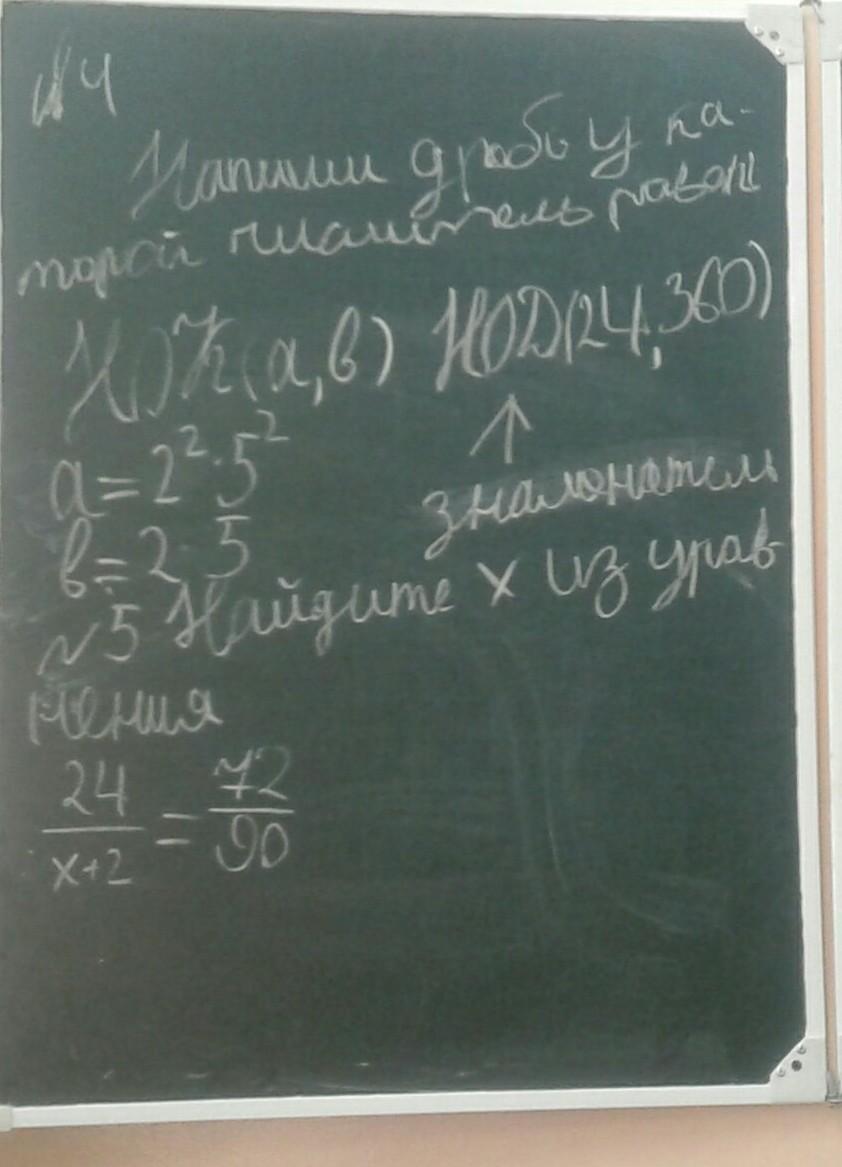 №4
Напиши дробь у ка-
торой числитель равен
НОК(a,b) НОД(24,360)
↑
a=2²·5²
знаменатель
b=2·5
№5 Найдите x из урав-
нения
24/x+2 = 72/90